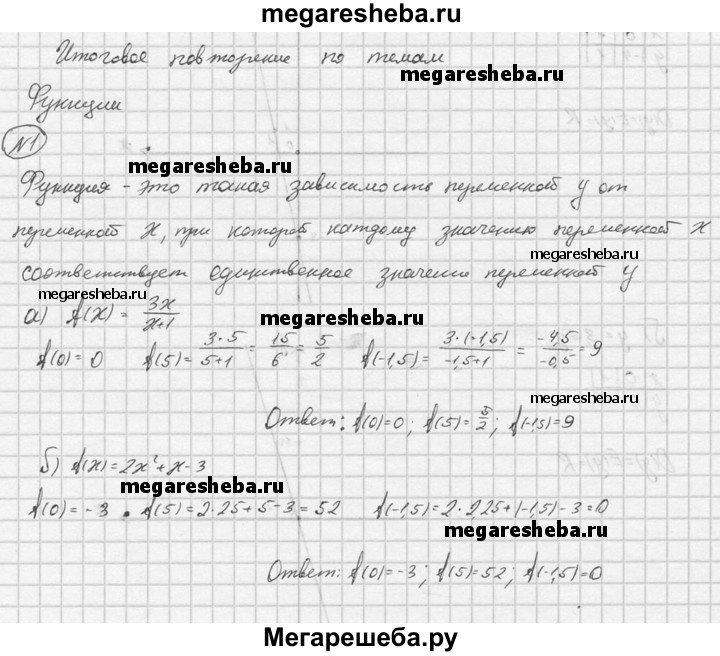 megaresheba.ru
Итоговое повторение по темам
megaresheba.ru
Функции
№1
megaresheba.ru
Функция - это такая зависимость переменной y от
переменной x, при которой каждому значению переменной x
megaresheba.ru
соответствует единственное значение переменной y
megaresheba.ru
megaresheba.ru
а) f(x) = 3x/(x+1)
f(0) = 0 f(5) = (3·5)/(5+1) = 15/6 = 5/2 f(-1,5) = (3·(-1,5))/(-1,5+1) = (-4,5)/(-0,5) = 9
megaresheba.ru
megaresheba.ru
Ответ: f(0)=0; f(5)=5/2; f(-1,5)=9
б) f(x)=2x²+x-3
megaresheba.ru
f(0)=-3 f(5)=2·25+5-3=52 f(-1,5)=2·2,25+(-1,5)-3=0
megaresheba.ru
Ответ: f(0)=-3; f(5)=52; f(-1,5)=0
megaresheba.ru
Мегарешеба.ру